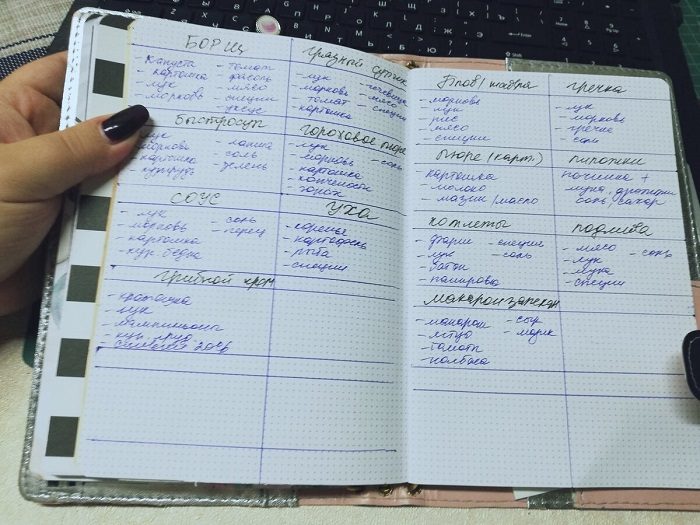 БОРЩ
- капуста - томат
- картошка - фасоль
- лук - мясо
- морковь - специи
- уксус
грязный супчик
- лук - чечевица
- морковь - мясо
- томат - специи
- картошка
быстросуп
- лук - лапша
- морковь - соль
- картошка - зелень
- кукуруза
гороховое пюре
- лук - соль
- морковь
- картошка
- копчености
- горох
СОУС
- лук - соль
- морковь - перец
- картошка
- кур. бедра
УХА
- коренья
- картофель
- рыба
- специи
грибной крем
- картошка
- лук
- шампиньоны
- кур. груд
- сливки 20%
Плов / шавля
- морковь
- лук
- рис
- мясо
- специи
гречка
- лук
- морковь
- гречка
- соль
пюре (карт.)
картошка
- молоко
- мазик / масло
пирожки
начинка +
мука, дрожжи
соль, сахар
котлеты
- фарш - специи
- лук - соль
- батон
- панировка
подлива
- мясо - соль
- лук
- мука
- специи
макарон запекан
- макарон - сыр
- яйцо - мазик
- томаты
- колбаса